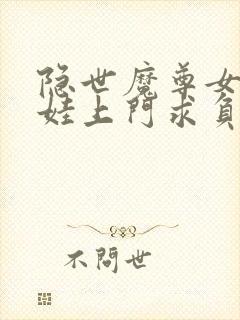 隐世魔尊女
娃上门求負
不問世